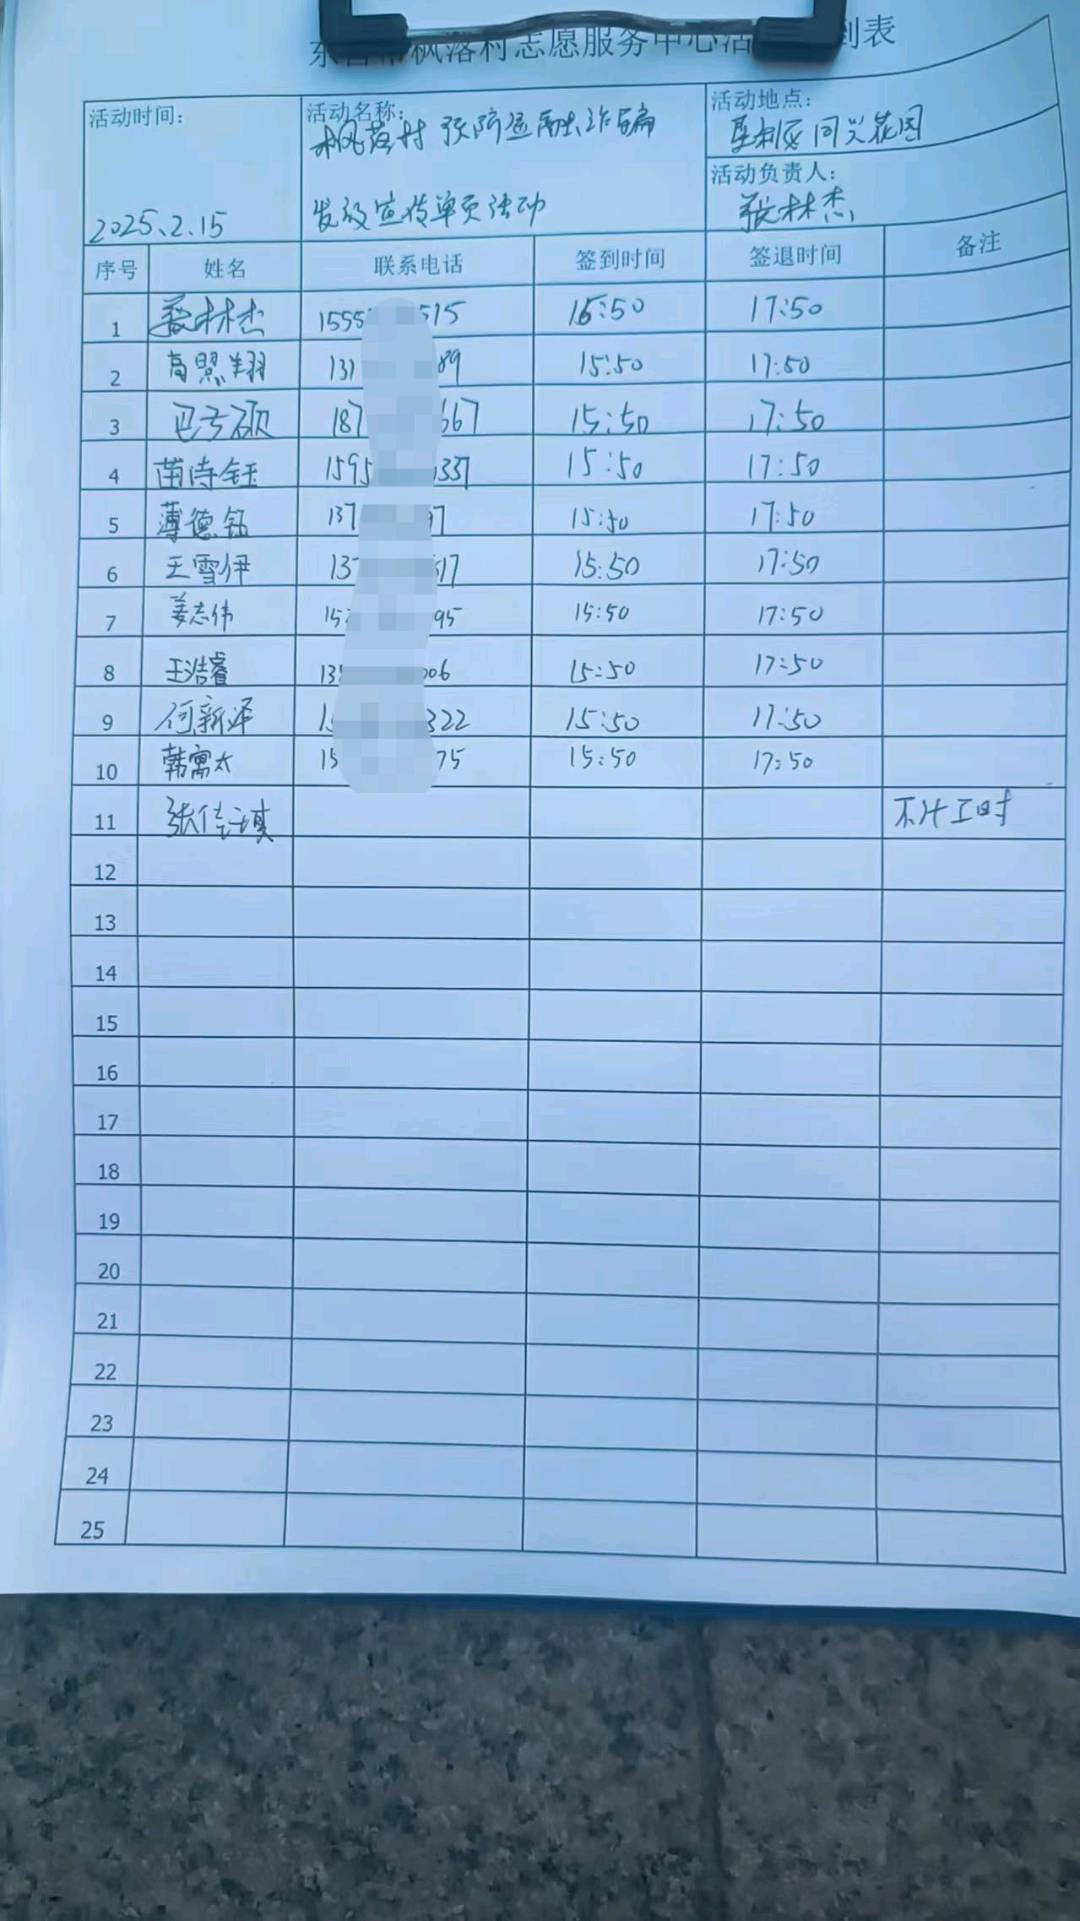 枫落村志愿服务中心活 到表
活动时间: 活动名称: 活动地点:
枫落村 预防金融诈骗 垦利区同兴花园
活动负责人:
2025.2.15 发放宣传单页活动 张林杰
序号 姓名 联系电话 签到时间 签退时间 备注
1 张林杰 1555 515 15:50 17:50
2 高照翔 131 89 15:50 17:50
3 187 667 15:50 17:50
4 苗诗钰 1595 337 15:50 17:50
5 薄德 137 97 15:50 17:50
6 王雪伊 137 517 15:50 17:50
7 姜志伟 15 95 15:50 17:50
8 王浩睿 13 006 15:50 17:50
9 何新泽 1 322 15:50 17:50
10 韩寓太 15 75 15:50 17:50
11 张佳琪 不计工时
12
13
14
15
16
17
18
19
20
21
22
23
24
25